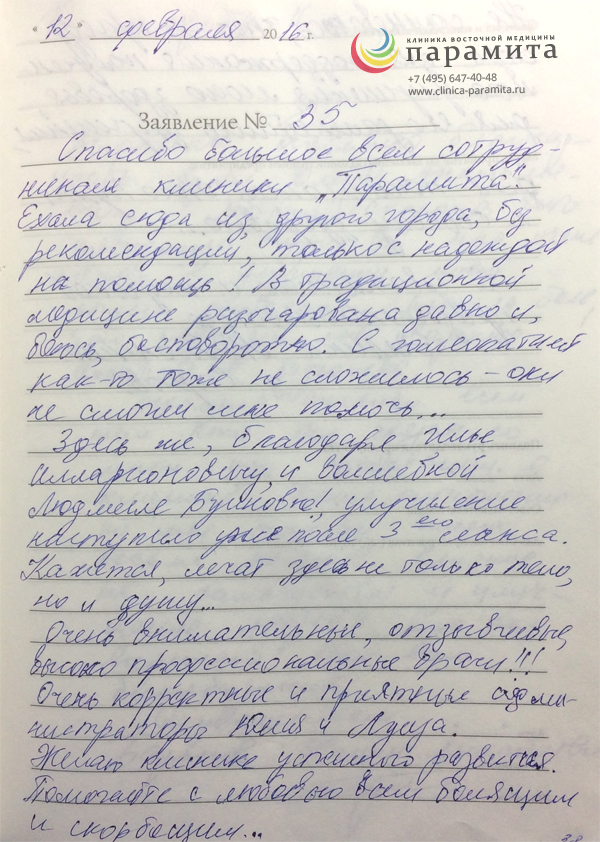 "12" февраля 2016 г.
КЛИНИКА ВОСТОЧНОЙ МЕДИЦИНЫ
ПАРАМИТА
+7 (495) 647-40-48
www.clinica-paramita.ru
Заявление № 35
Спасибо большое всем сотруд-
никам клиники „Парамита"!
Ехала сюда из другого города, без
рекомендаций, только с надеждой
на помощь! В традиционной
медицине разочарована давно и,
боюсь, бесповоротно. С гомеопатией
как-то тоже не сложилось – они
не смогли мне помочь...
Здесь же, благодаря Илье
Илларионовичу и волшебной
Людмиле Буиновне!, улучшение
наступило уже после 3 его сеанса.
Кажется, лечат здесь не только тело,
но и душу...
Очень внимательные, отзывчивые,
высоко профессиональные врачи!!!
Очень корректные и приятные адми-
нистраторы Юлия и Луиза.
Желаю клинике успешного развития.
Помогайте с любовью всем болящим
и скорбящим...